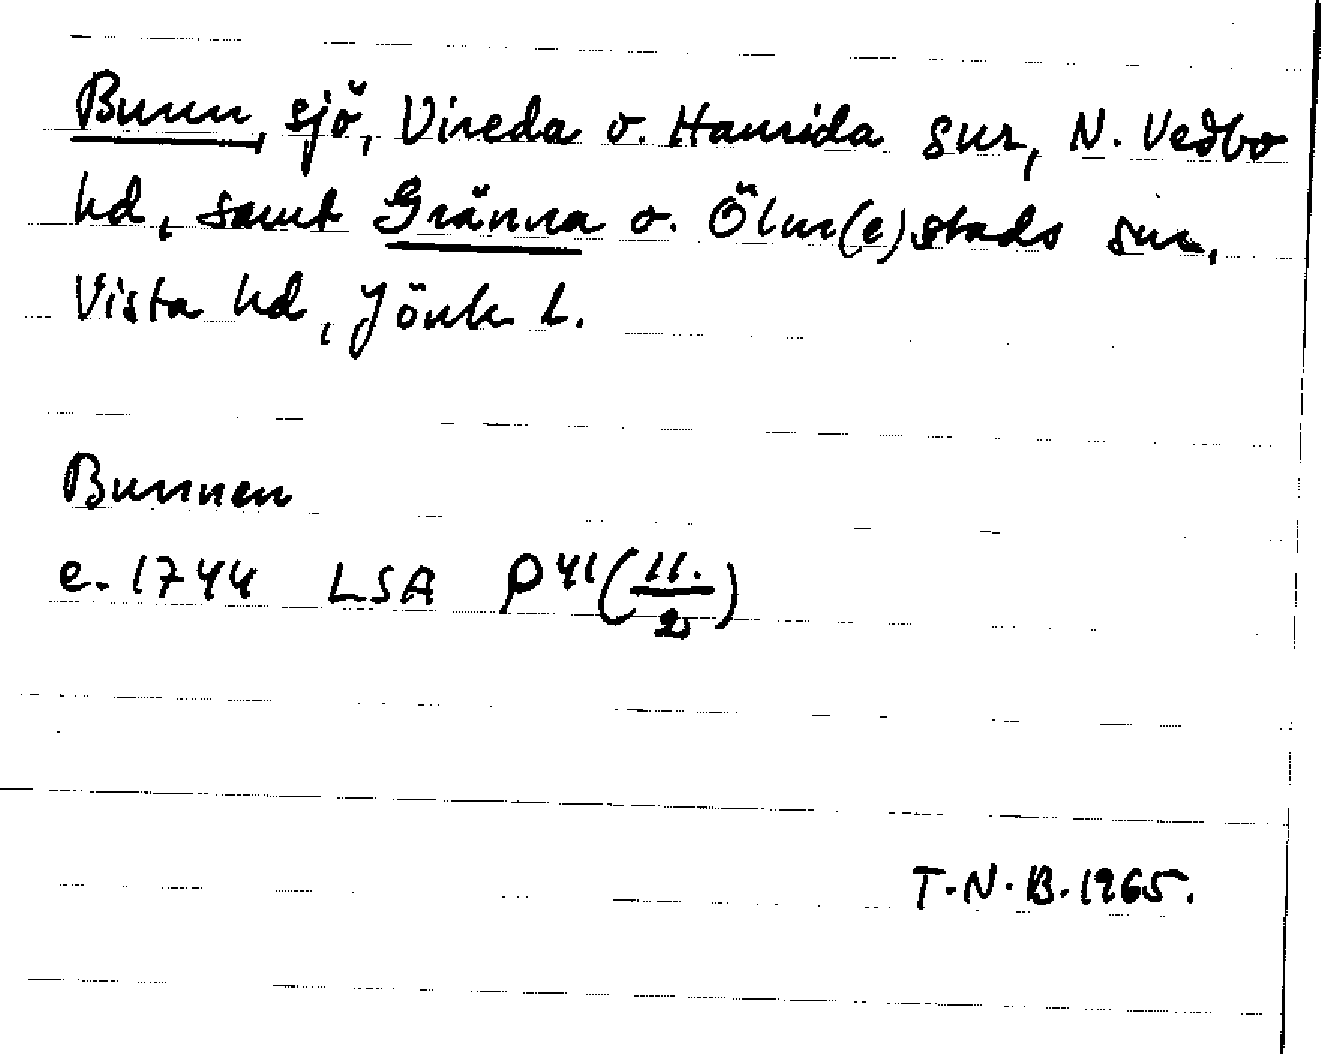 Bunn, sjö, Vireda o. Haurida snr, N. Vedbo
hd, samt Gränna o. Ölm(e)stads snr,
Vista hd, Jönk l.
Bunnen
e. 1744 LSA P41(11./2)
T.N.B. 1965.